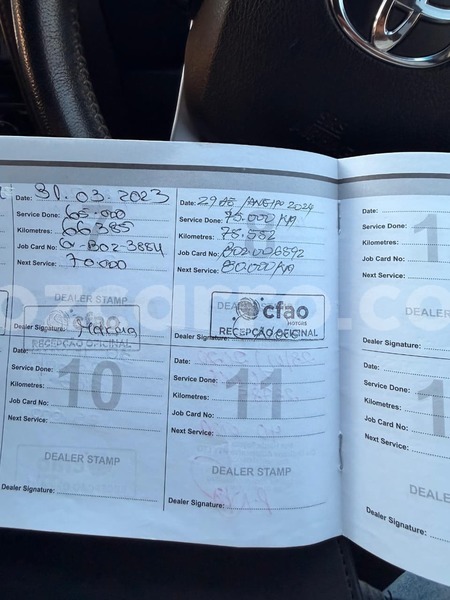 Date: 31.03.2023
Service Done: 65.000
Kilometres: 66385
Job Card No:
Next Service: 70.000
DEALER STAMP
Dealer Signature:
RECEPÇÃO OFICINAL
Date: 29 DE JANEIRO 2024
Service Done: 75.000 KM
Kilometres: 75.552
Job Card No: B02.006892
Next Service: 80.000 KM
cfao
MOTORS
RECEPÇÃO OFICINAL
Dealer Signature:
Date:
Service Done:
Kilometres:
Job Card No:
Next Service:
DEALER STAMP
Dealer Signature:
Date:
Service Done:
Kilometres:
Job Card No:
Next Service:
10
DEALER STAMP
Dealer Signature:
Date:
Service Done:
Kilometres:
Job Card No:
Next Service:
11
DEALER STAMP
Dealer Signature:
Date:
Service Done:
Kilometres:
Job Card No:
Next Service:
DEALER
Dealer Signature: